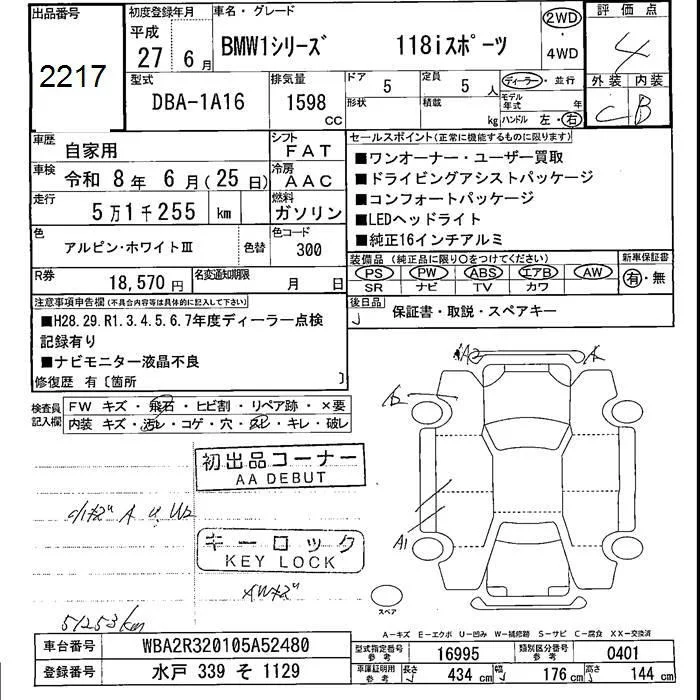 出品番号
2217
初度登録年月
平成
27年 6月
車名・グレード
BMW1シリーズ 118iスポーツ
2WD
・
4WD
評価点
4
外装 内装
C B
型式
DBA-1A16
排気量
1598
cc
ドア
5
形状
定員
5人
積載
kg
ディーラー・並行
モデル年式 年
ハンドル 左・右
車歴
自家用
シフト
FAT
車検
令和 8年 6月(25日)
冷房
AAC
走行
5万1千255 km
燃料
ガソリン
色
アルピン・ホワイトⅢ
色替
色コード
300
R券
18,570円
名変通知期限
月 日
セールスポイント(正常に機能するものに限ります)
■ワンオーナー・ユーザー買取
■ドライビングアシストパッケージ
■コンフォートパッケージ
■LEDヘッドライト
■純正16インチアルミ
装備品(純正品に限り○をつけてください)
PS PW ABS エアB AW
SR ナビ TV カワ
新車保証書
有・無
後日品
保証書・取説・スペアキー
注意事項申告欄(不具合内容等は具体的に記入して下さい)
■H28.29.R1.3.4.5.6.7年度ディーラー点検
記録有り
■ナビモニター液晶不良
修復歴 有〔箇所 〕
検査員記入欄
FW キズ・飛石・ヒビ割・リペア跡・×要
内装 キズ・汚レ・コゲ・穴・スレ・キレ・破レ
初出品コーナー
AA DEBUT
キーロック
KEY LOCK
51253km
A2
A
A1
スペア
A-キズ E-エクボ U-凹み W-補修跡 S-サビ C-腐食 XX-交換済
車台番号
WBA2R320105A52480
登録番号
水戸 339 そ 1129
型式指定番号
参考
16995
類別区分番号
参考
0401
車庫証明用
参考
長さ
434cm
幅
176cm
高さ
144cm